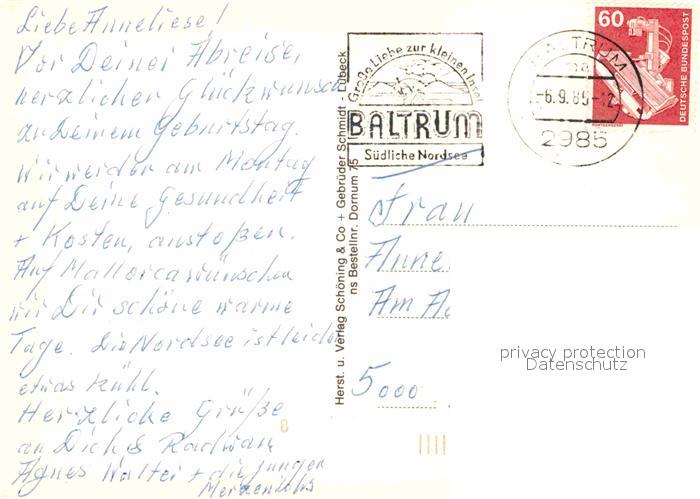 Liebe Anneliese!
Vor Deiner Abreise,
herzlichen Glückwunsch
zu Deinem Geburtstag.
Wir werden am Montag
auf Deine Gesundheit
+ Kosten, anstoßen.
Auf Mallorca wünschen
wir Dir schöne warme
Tage. Die Nordsee ist leider
etwas kühl.
Herzliche Grüße
an Dich &
Agnes Walter + die jungen
Große Liebe zur kleinen Insel
BALTRUM
Südliche Nordsee
BALTRUM
-6.9.85-12
2985
60
DEUTSCHE BUNDESPOST
Herst. u. Verlag Schöning & Co + Gebrüder Schmidt - Lübeck
ns Bestellnr. Dornum 75
Frau
Anne
Am
5000
privacy protection
Datenschutz
8